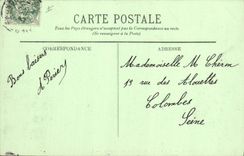 CARTE POSTALE
Tous les Pays étrangers n'acceptent pas la Correspondance au recto
(Se renseigner à la Poste)
CORRESPONDANCE
ADRESSE
Bons baisers
Mademoiselle M
13 rue des Alouettes
Colombes
Seine